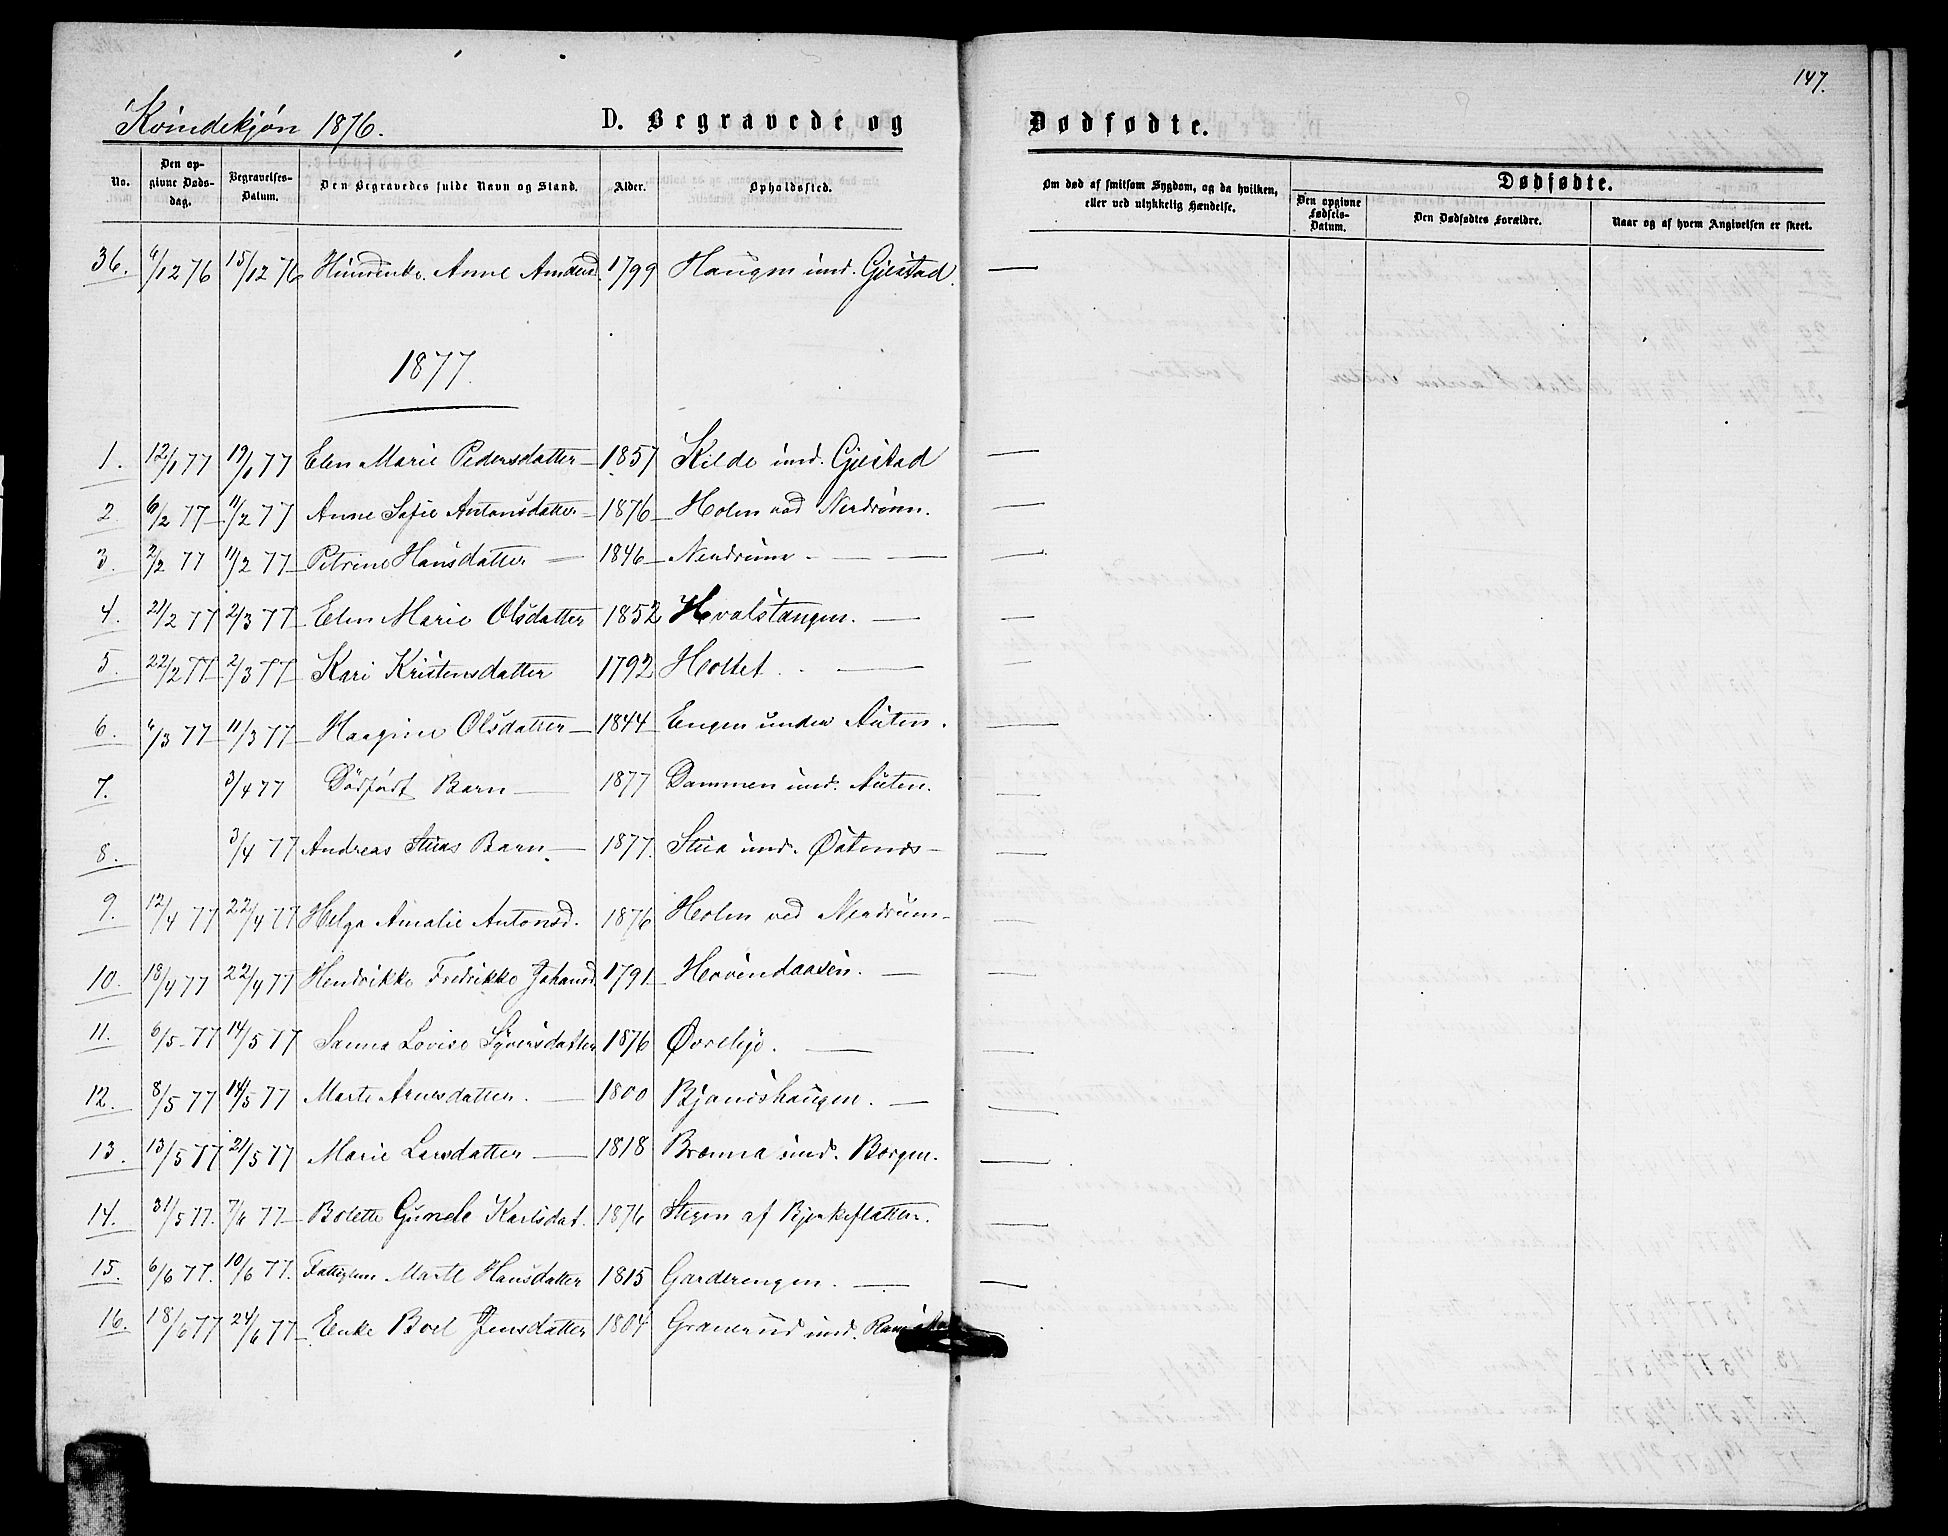 147.
Kvindekjøn 1876.
D. Begravede og Dødfødte.
No. | Den opgivne Døds-dag. | Begravelses-Datum. | Den Begravedes fulde Navn og Stand. | Alder. | Opholdssted. | Om død af smitsom Sygdom, og da hvilken, eller ved ulykkelig Hændelse. | Dødfødte. | Den opgivne Fødsels-Datum. | Den Dødfødtes Forældre. | Naar og af hvem Angivelsen er skeet.
36. 6/12 76 15/12 76 Anne Amdersd. 1799 Haugen und. Gjestad. —
1877.
1. 12/1 77 19/1 77 Elen Marie Pedersdatter — 1857 Kilde und. Gjestad —
2. 6/2 77 11/2 77 Anne Sofie Antonsdatter — 1876 Holm ved Nerdrum. —
3. 2/2 77 11/2 77 Petrine Hansdatter — 1846 Nerdrum — —
4. 21/2 77 2/3 77 Elen Marie Olsdatter 1852 Hvalstangen. — —
5. 22/2 77 2/3 77 Kari Kristensdatter 1792 Holtet. — —
6. 6/3 77 11/3 77 Haagine Olsdatter — 1844 Engen under Auten. —
7. 3/4 77 Dødfødt Barn — 1877 Dammen und. Auten. —
8. 3/4 77 Andreas Stuas Barn. — 1877. Stua und. —
9. 12/4 77 22/4 77 Helga Amalie Antonsd. 1876 Holm ved Nerdrum —
10. 18/4 77 22/4 77 Hendrikke Fredrikke Johansd. 1791 Hovindaasen. — —
11. 6/5 77 14/5 77 Sanna Lovise Syversdatter 1876 Øvrebye. — —
12. 8/5 77 14/5 77 Marte Arnesdatter. — 1800 — —
13. 13/5 77 21/5 77 Marie Larsdatter — 1818 Brænna und. Borgen. —
14. 31/5 77. 7/6 77 Bolette Gunele Karlsdat. 1876 Stegen af Bjerkeflatten. —
15. 6/6 77. 10/6 77. Fattiglem Marte Hansdatter 1815 Garderengen. — —
16. 18/6 77 24/6 77 Enke Boel Jensdatter 1804 Granerud und.